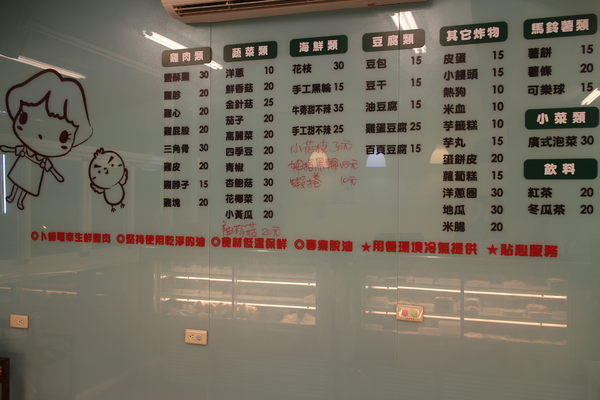 雞肉類
鹽酥雞 30
雞胗 20
雞心 20
雞屁股 20
三角骨 30
雞皮 20
雞脖子 15
雞塊 20
蔬菜類
洋蔥 10
鮮香菇 20
金針菇 25
茄子 20
高麗菜 20
四季豆 20
青椒 20
杏鮑菇 30
花椰菜 20
小黃瓜 20
20元
海鮮類
花枝 30
手工黑輪 15
牛蒡甜不辣 35
手工甜不辣 25
小花枝 30元
蝦捲 10元
豆腐類
豆包 15
豆干 15
油豆腐 15
雞蛋豆腐 25
百頁豆腐 15
其它炸物
皮蛋 15
小饅頭 15
熱狗 10
米血 10
芋籤粿 10
芋丸 15
蛋餅皮 20
蘿蔔糕 15
洋蔥圈 30
地瓜 30
米腸 20
馬鈴薯類
薯餅 15
薯條 20
可樂球 15
小菜類
廣式泡菜 30
飲料
紅茶 20
冬瓜茶 20
◎卜蜂電宰生鮮雞肉 ◎堅持使用乾淨的油 ◎食材低溫保鮮 ◎專業脫油 ★用餐環境冷氣提供 ★貼心服務